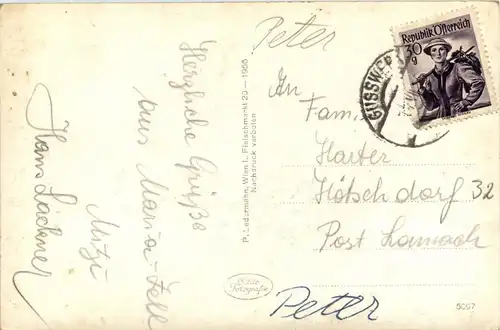 Herzliche Grüße
aus Maria-Zell
Mitzi
Hans Lackner
P. Ledermann, Wien I., Fleischmarkt 20 — 1956
Nachdruck verboten
Echte
Fotografie
Peter
Republik Österreich
30
g
GUSSWERK
An
Fam,
Harter
Hötschdorf 32
Post Lannach
Peter